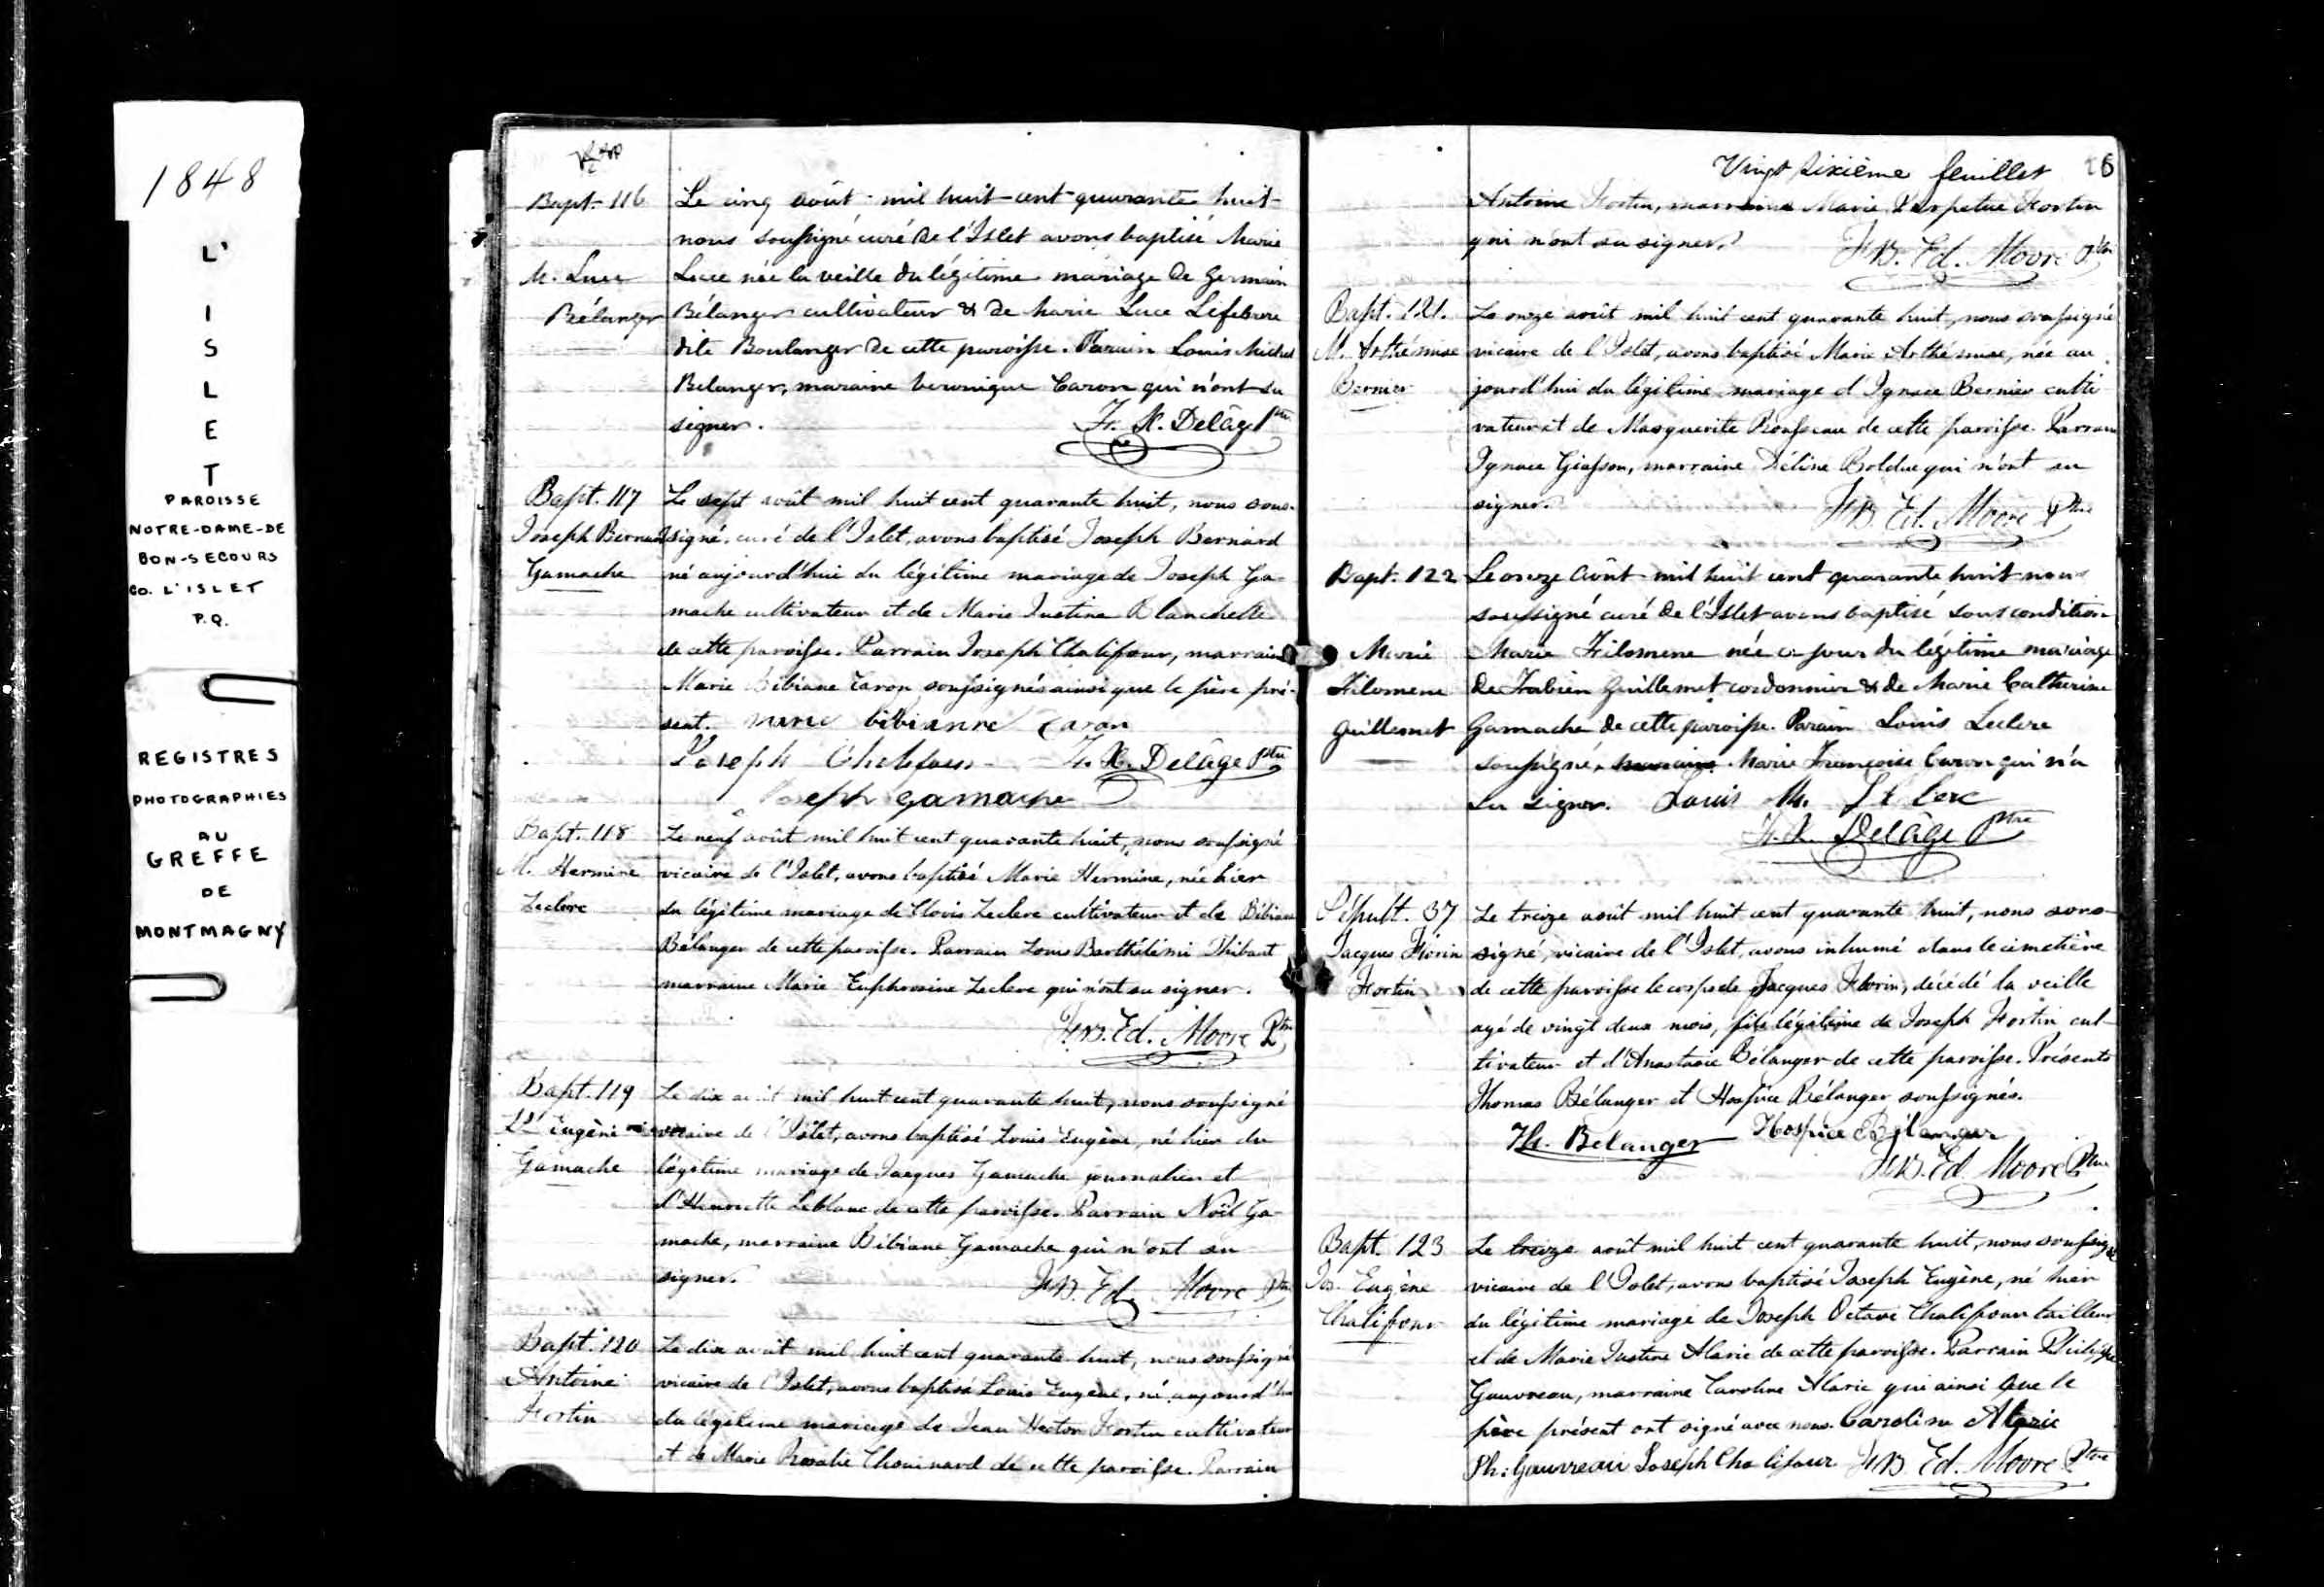 1848
L'
I
S
L
E
T
PAROISSE
NOTRE-DAME-DE
BON-SECOURS
CO. L'ISLET
P.Q.
REGISTRES
PHOTOGRAPHIES
AU
GREFFE
DE
MONTMAGNY
Bapt. 116
M. Luce
Bélanger
Le cinq août mil huit cent quarante huit
nous soussigné curé de l'Islet avons baptisé Marie
Luce née la veille du légitime mariage de Germain
Bélanger cultivateur & de Marie Luce Lefebvre
dite Boulanger de cette paroisse. Parain Louis Michel
Belanger, maraine veronique Caron qui n'ont su
signer. Fr. X. Delâge Ptre
Bapt. 117
Joseph Bernard
Gamache
Le sept août mil huit cent quarante huit, nous sous-
signé, curé de l'Islet, avons baptisé Joseph Bernard
né aujourd'hui du légitime mariage de Joseph Ga-
mache cultivateur et de Marie Justine Blanchette
de cette paroisse. Parrain Joseph Chalifour, marraine
Marie Bibiane Caron soussignés ainsi que le père pré-
sent. marie bibianne Caron
Joseph Fr. X. Delâge Ptre
Joseph gamache
Bapt. 118
M. Hermine
Leclerc
Le neuf août mil huit cent quarante huit, nous soussigné
vicaire de l'Islet, avons baptisé Marie Hermine, née hier
du légitime mariage de Clovis Leclerc cultivateur et de Bibiane
Bélanger de cette paroisse. Parrain Louis Barthélémi Thibaut
marraine Marie Euphrosine Leclerc qui n'ont su signer.
Ed. Moore Ptre
Bapt. 119
Ls Eugène
Gamache
Le dix août mil huit cent quarante huit, nous soussigné
vicaire de l'Islet, avons baptisé Louis Eugène, né hier du
légitime mariage de Jacques Gamache journalier et
d'Henriette Leblanc de cette paroisse. Parrain Noël Ga-
mache, marraine Bibiane Gamache qui n'ont su
signer. Ed. Moore Ptre
Bapt. 120
Antoine
Fortin
Le dix août mil huit cent quarante huit, nous soussigné
vicaire de l'Islet, avons baptisé Louis Eugène, né aujourd'hui
du légitime mariage de Jean Fortin cultivateur
et de Marie Rosalie Chouinard de cette paroisse. Parrain
Vingt sixième feuillet 26
Antoine Fortin, marraine Marie Perpetue Fortin
qui n'ont su signer. Ed. Moore Ptre
Bapt. 121.
M. Arthémise
Bernier
Le onze août mil huit cent quarante huit, nous soussigné
vicaire de l'Islet, avons baptisé Marie Arthémise, née au
jourd'hui du légitime mariage d'Ignace Bernier culti
vateur et de Marguerite Rousseau de cette paroisse. Parrain
Ignace Giasson, marraine Déline Bolduc qui n'ont su
signer. Ed. Moore Ptre
Bapt. 122
Marie
Filomene
Guillemet
Le onze Août mil huit cent quarante huit nous
soussigné curé de l'Islet avons baptisé sous condition
Marie Filomene née ce jour du légitime mariage
de Fabien Guillemet cordonnier & de Marie Catherine
Gamache de cette paroisse. Parain Louis Leclerc
soussigné, maraine Marie Françoise Caron qui n'a
su signer. Louis M. Le clerc
F. X. Delâge Ptre
Sépult. 37
Jacques Florin
Fortin
Le treize août mil huit cent quarante huit, nous sous-
signé, vicaire de l'Islet, avons inhumé dans le cimetière
de cette paroisse le corps de Jacques Florin, décédé la veille
agé de vingt deux mois, fils légitime de Joseph Fortin cul-
tivateur et d'Anastasie Bélanger de cette paroisse. Présents
Thomas Bélanger et Hospice Bélanger soussignés.
Th. Belanger Hospice Bélanger
Ed. Moore Ptre
Bapt. 123
Jos. Eugène
Chalifour
Le treize août mil huit cent quarante huit, nous soussigné
vicaire de l'Islet, avons baptisé Joseph Eugène, né hier
du légitime mariage de Joseph Octave Chalifour tailleur
et de Marie Justine Alarie de cette paroisse. Parrain Philippe
Gauvreau, marraine Caroline Alarie qui ainsi que le
père présent ont signé avec nous. Caroline Alarie
Ph: Gauvreau Joseph Chalifour Ed. Moore Ptre